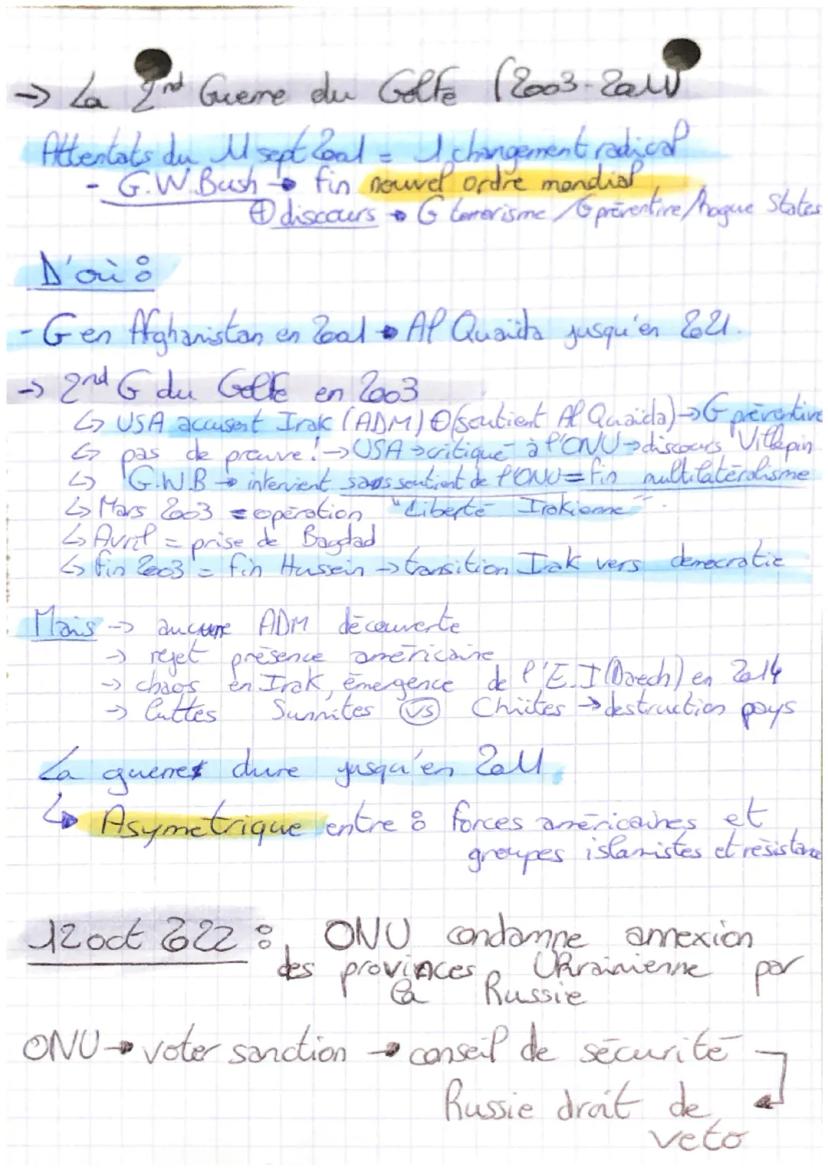 → La 2nd Guerre du Golfe (2003-2011)
Attentats du 11 sept 2001 = 1 changement radical
- G.W.Bush → fin nouvel ordre mondial
⊕ discours → G terrorisme / G préventive / Rogue States
D'où :
- G en Afghanistan en 2001 → Al Quaïda jusqu'en 2021.
→ 2nd G du Golfe en 2003
↳ USA accusent Irak (ADM) ⊕ (soutient Al Quaïda) → G préventive
↳ pas de preuve ! → USA → critique à l'ONU → discours Villepin
↳ G.W.B → intervient sans soutient de l'ONU = fin multilatéralisme
↳ Mars 2003 = opération "Liberté Irakienne".
↳ Avril = prise de Bagdad
↳ fin 2003 = fin Husein → transition Irak vers democratie
Mais → aucune ADM découverte
→ rejet présence américaine
→ chaos en Irak, émergence de l'E.I (Daech) en 2014
→ luttes Sunnites VS Chiites → destruction pays
La guerre dure jusqu'en 2011.
↳ Asymetrique entre : forces américaines et
groupes islamistes et résistance
12 oct 2022 : ONU condamne annexion
des provinces Ukrainienne par
la Russie
ONU → voter sanction → conseil de sécurité
Russie droit de
veto